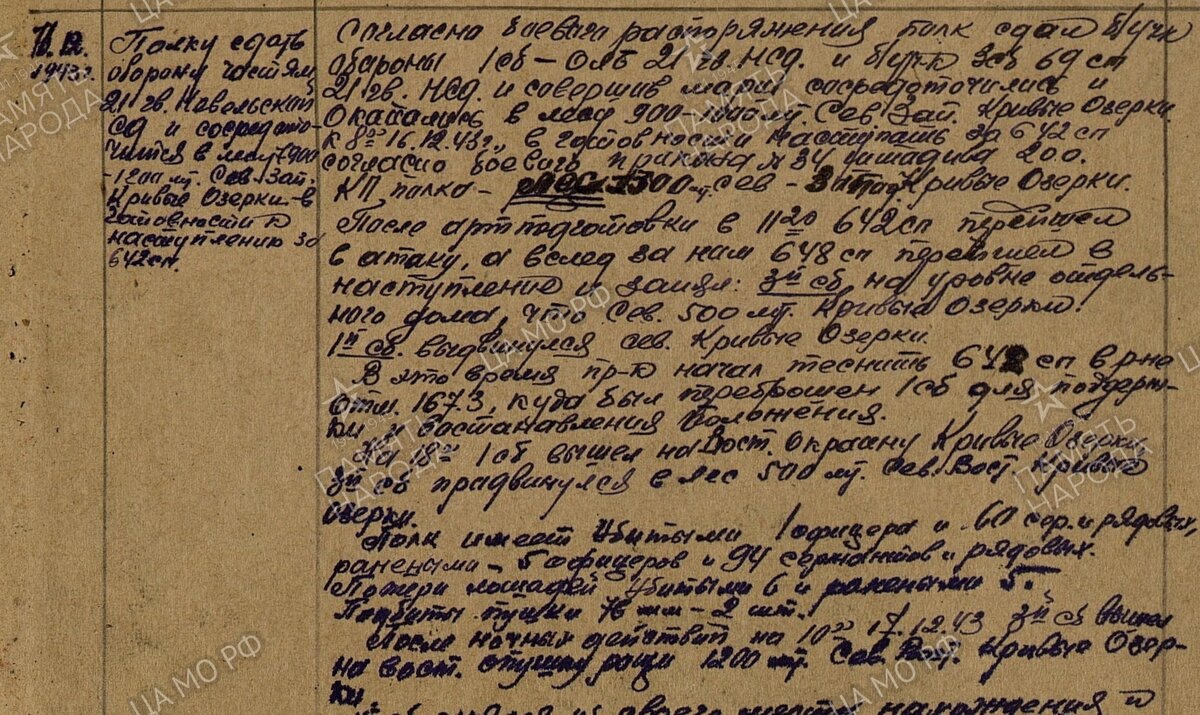 16.12.
1943г.
Полку сдать
оборону частям
21 гв. Невольский
сд и сосредото-
чится в лесу 900
-1200 мт. Сев. Зап.
Кривые Озерки в
готовности к
наступлению за
642 сп.
Согласно боевого распоряжения полк сдал б/уч-к
обороны 1 сб - 21 гв. НСД. и б/уч-к 3 сб 69 сп
21 гв. НСД. и совершив марш сосредоточились и
Окапались в лесу 900-1000 мт. Сев. Зап. Кривые Озерки.
к 8 00 16.12.43 г., в готовности наступать за 642 сп
согласно боевого приказа № 34 200.
КП полка - лес 1500 мт. Сев - Зап. Кривые Озерки.
После артподготовки в 11 20 642 сп перешел
в атаку, а вслед за ним 648 сп перешел в
наступление и занял: 3й сб на уровне отдель-
ного дома, что Сев. 500 мт. Кривые Озерки.
1й сб. выдвинулся сев. Кривые Озерки.
В это время пр-к начал теснить 642 сп в р-не
отм. 167.3, куда был переброшен 1 сб для поддерж-
ки и востановления положения.
На 18 00 1 сб вышел на Вост. Окраину Кривые Озерки
3й сб продвинулся в лес 500 мт. Сев. Вост. Кривые
Озерки.
Полк имеет убитыми 1 офицера и 60 сер. и рядовых,
ранеными - 5 офицеров и 94 сержантов и рядовых.
Потери лошадей убитыми 6 и ранеными 5.
Подбиты пушки 76 мм - 2 шт.
После ночных действий на 10 00 17.12.43 3й сб вышел
на вост. опушку рощи 1200 мт. Сев. Вост. Кривые Озер-
ки
своего места нахождения и
ЦА МО РФ
ПАМЯТЬ
НАРОДА